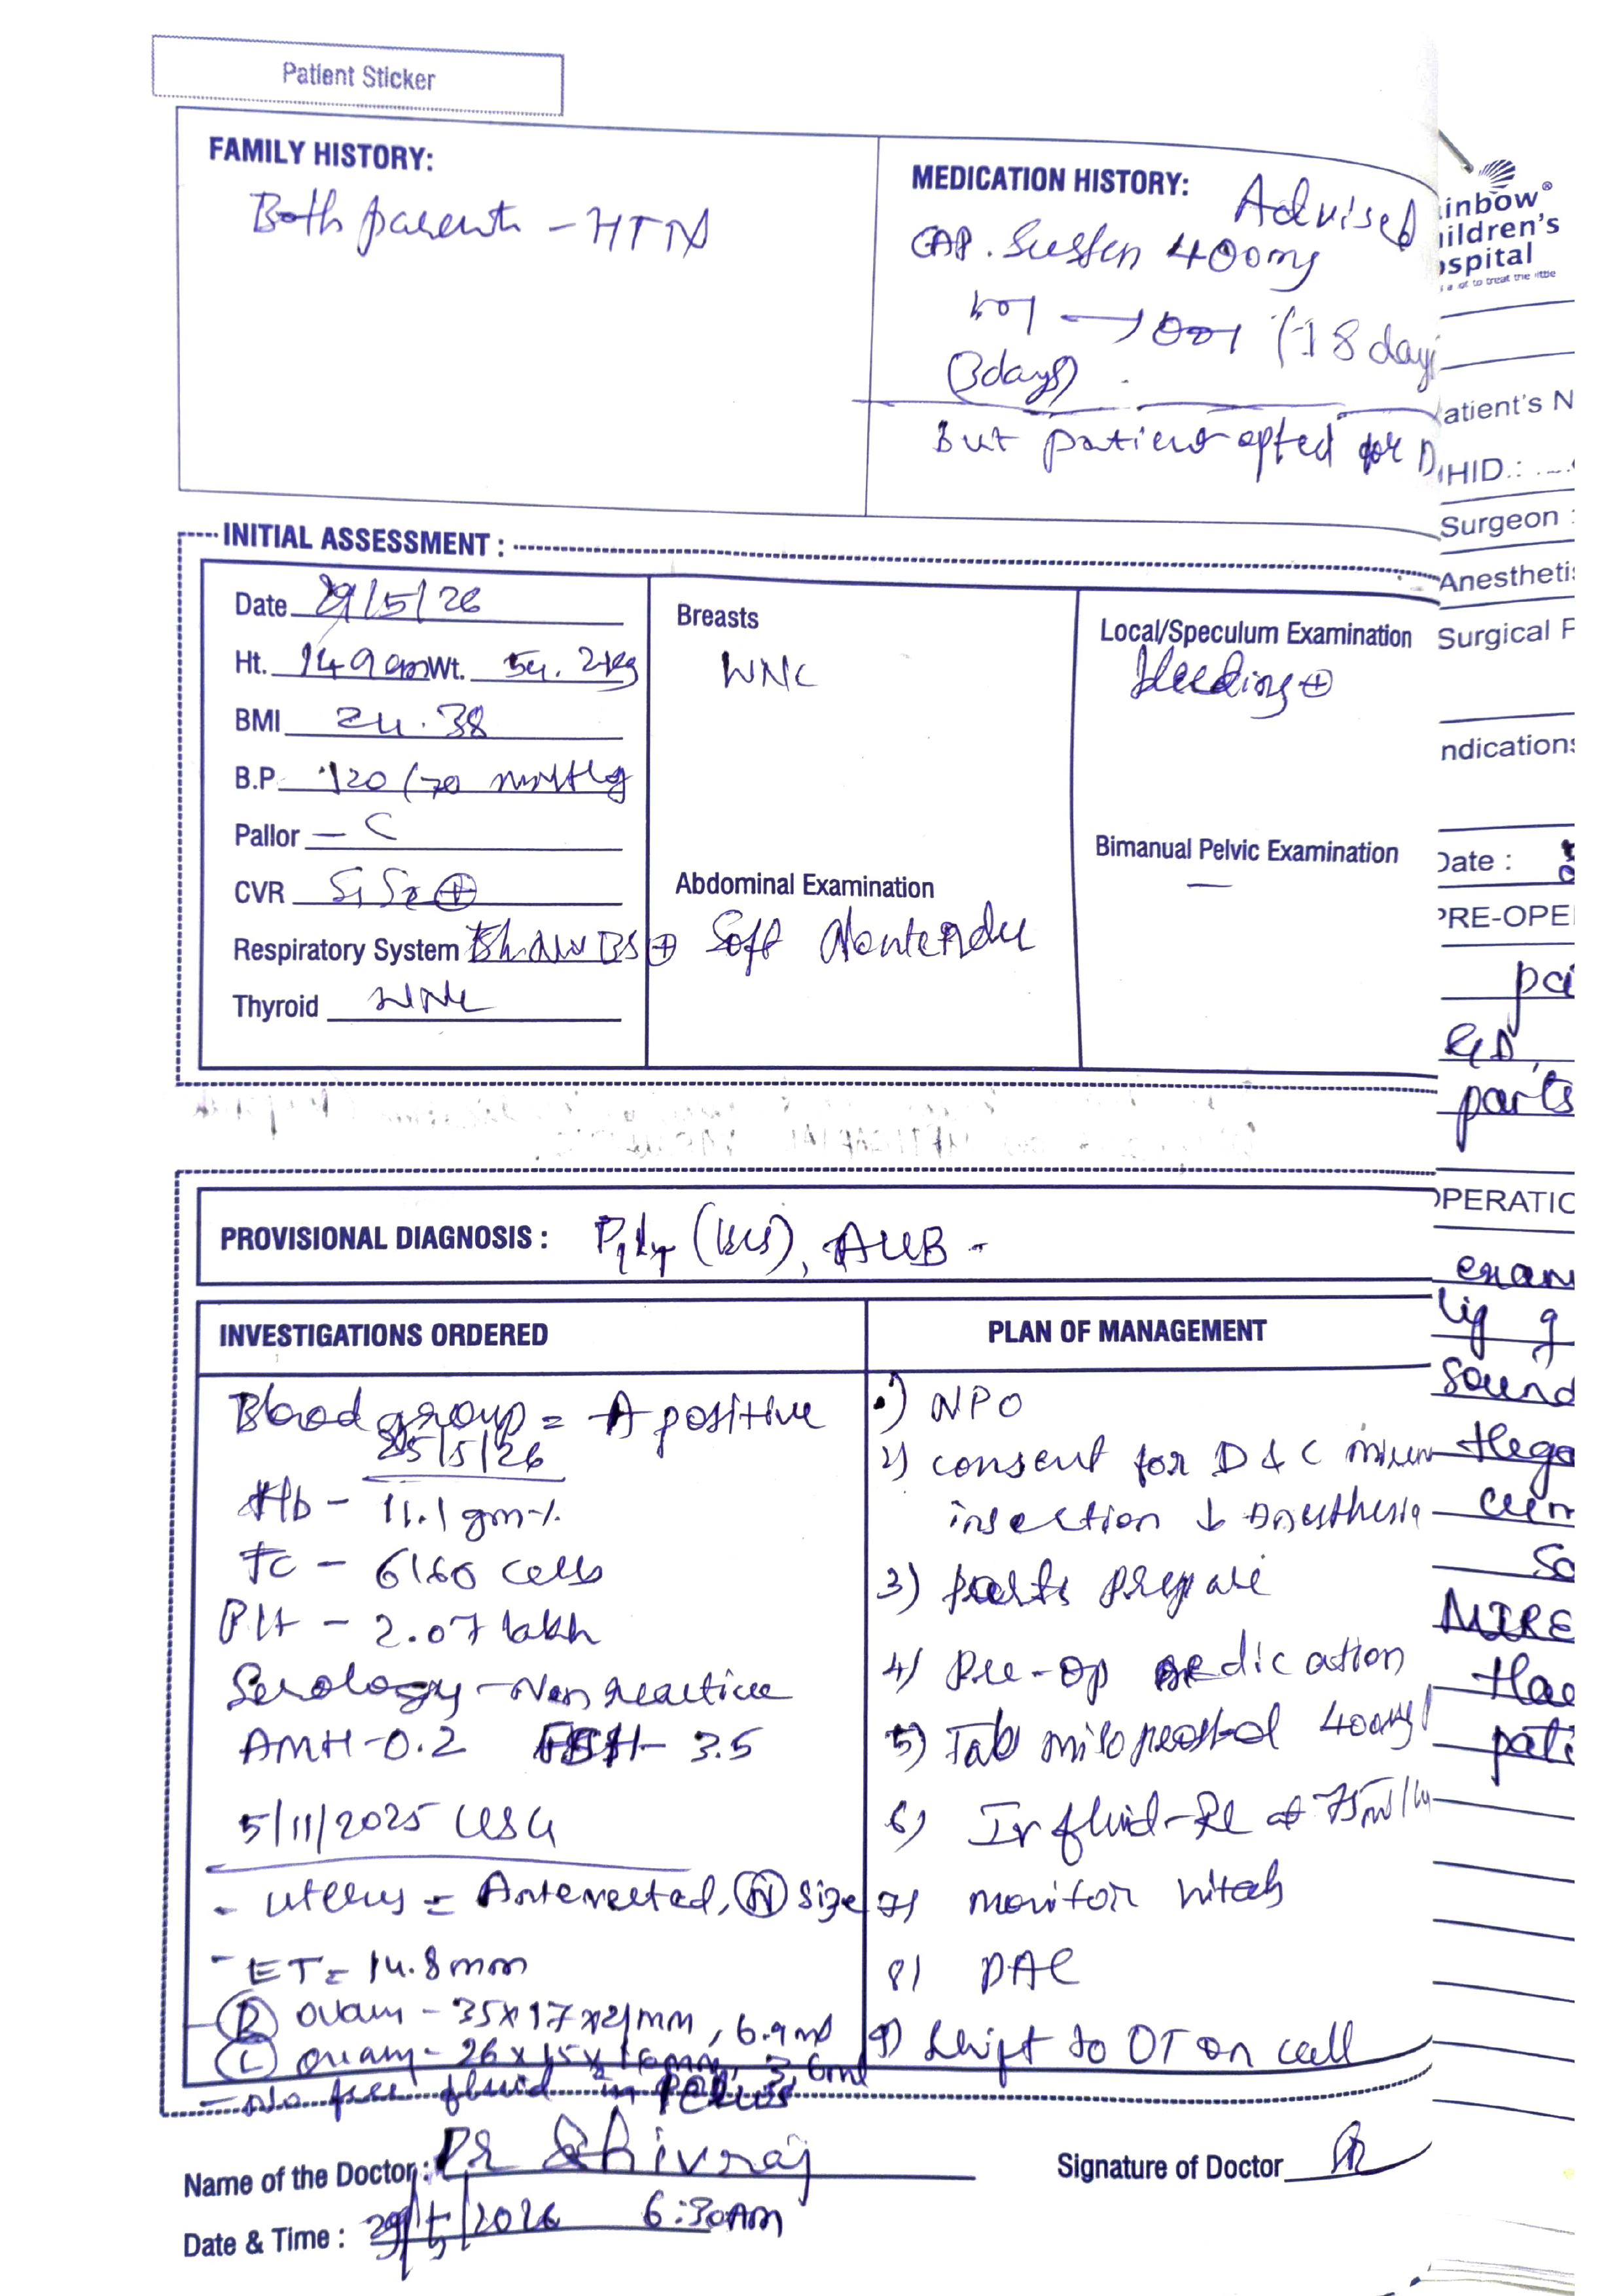 Patient Sticker
FAMILY HISTORY:
Both parents - HTN
MEDICATION HISTORY: Advised
CAP. Susten 400mg
101 → 001 (18 day
(3days)
But patient opted for D
INITIAL ASSESSMENT :
Date 29/5/26
Ht. 149 cm Wt. 54.2kg
BMI 24.38
B.P. 120/70 mmHg
Pallor -
CVR S1S2 ⊕
Respiratory System BS ⊕
Thyroid WNL
Breasts
WNL
Abdominal Examination
Soft Nontender
Local/Speculum Examination
bleeding ⊕
Bimanual Pelvic Examination
—
PROVISIONAL DIAGNOSIS : P1L1 (LCS), AUB -
INVESTIGATIONS ORDERED
Blood group = A positive
25/5/26
Hb - 11.1 gm%
TC - 6160 cells
Plt - 2.07 lakh
Serology - Non reactive
AMH - 0.2 FSH - 3.5
5/11/2025 USG
- Uterus = Anteverted, (N) size
- ET = 14.8mm
(R) ovary - 35x17x21mm, 6.9ml
(L) ovary - 26x15x16mm, 3.6ml
- No free fluid in Pelvis
PLAN OF MANAGEMENT
1) NPO
2) consent for D & C
insertion ↓ Anesthesia
3) parts prepare
4) Pre-op medication
5) Tab misoprostol 400mg
6) IV fluid - RL @ 75ml/hr
7) monitor vitals
8) PAC
9) Shift to OT on call
Name of the Doctor : Dr Shivraj
Signature of Doctor
Date & Time : 29/5/2026 6:30AM
inbow®
ildren's
spital
atient's N
HID.:
Surgeon :
Anestheti
Surgical P
ndications
Date :
PRE-OPE
parts
OPERATIC
exam
Sound
MIRE